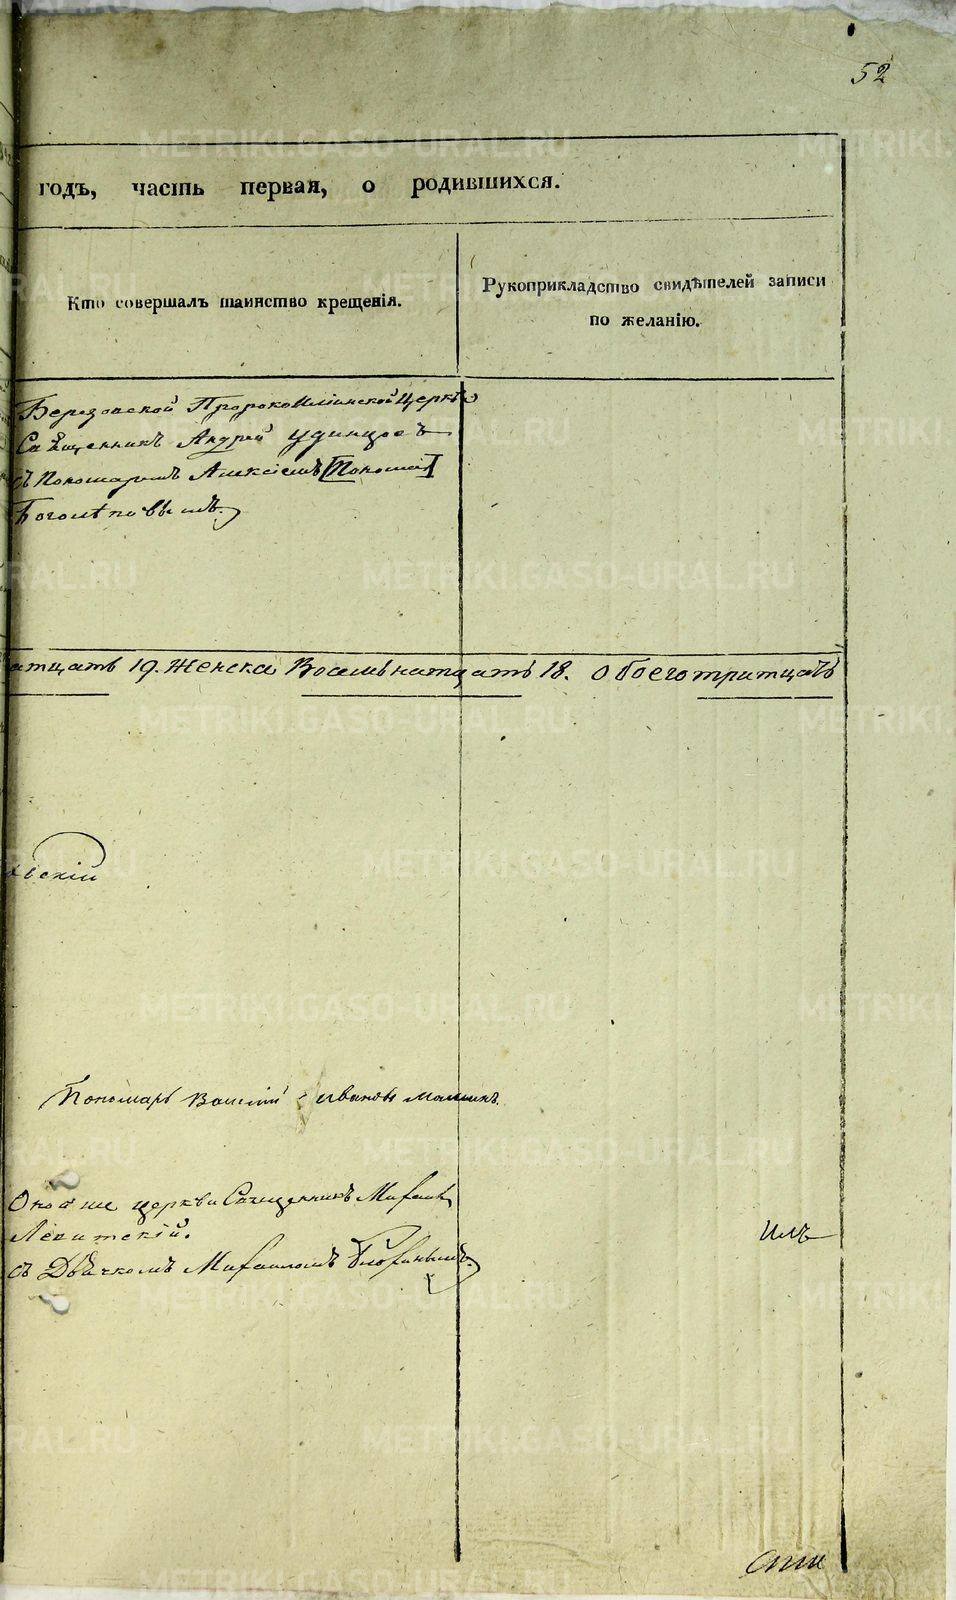 52
годъ, часть первая, о родившихся.
Кто совершалъ таинство крещенія.
Рукоприкладство свидѣтелей записи
по желанію.
Березовской Пророкоилiинской Церкв
Священникъ Андрей Удинцовъ
съ Пономаремъ Алексіемъ [Понома]
Боголѣповымъ.
атцать 19. Женска Восемьнатцать 18. обоего тритцать
вскій
Пономарь Василій Ивановъ
Оной же церкви Священникъ Михаилъ
Левитскій.
съ Дьячкомъ Михаиломъ
METRIKI.GASO-URAL.RU